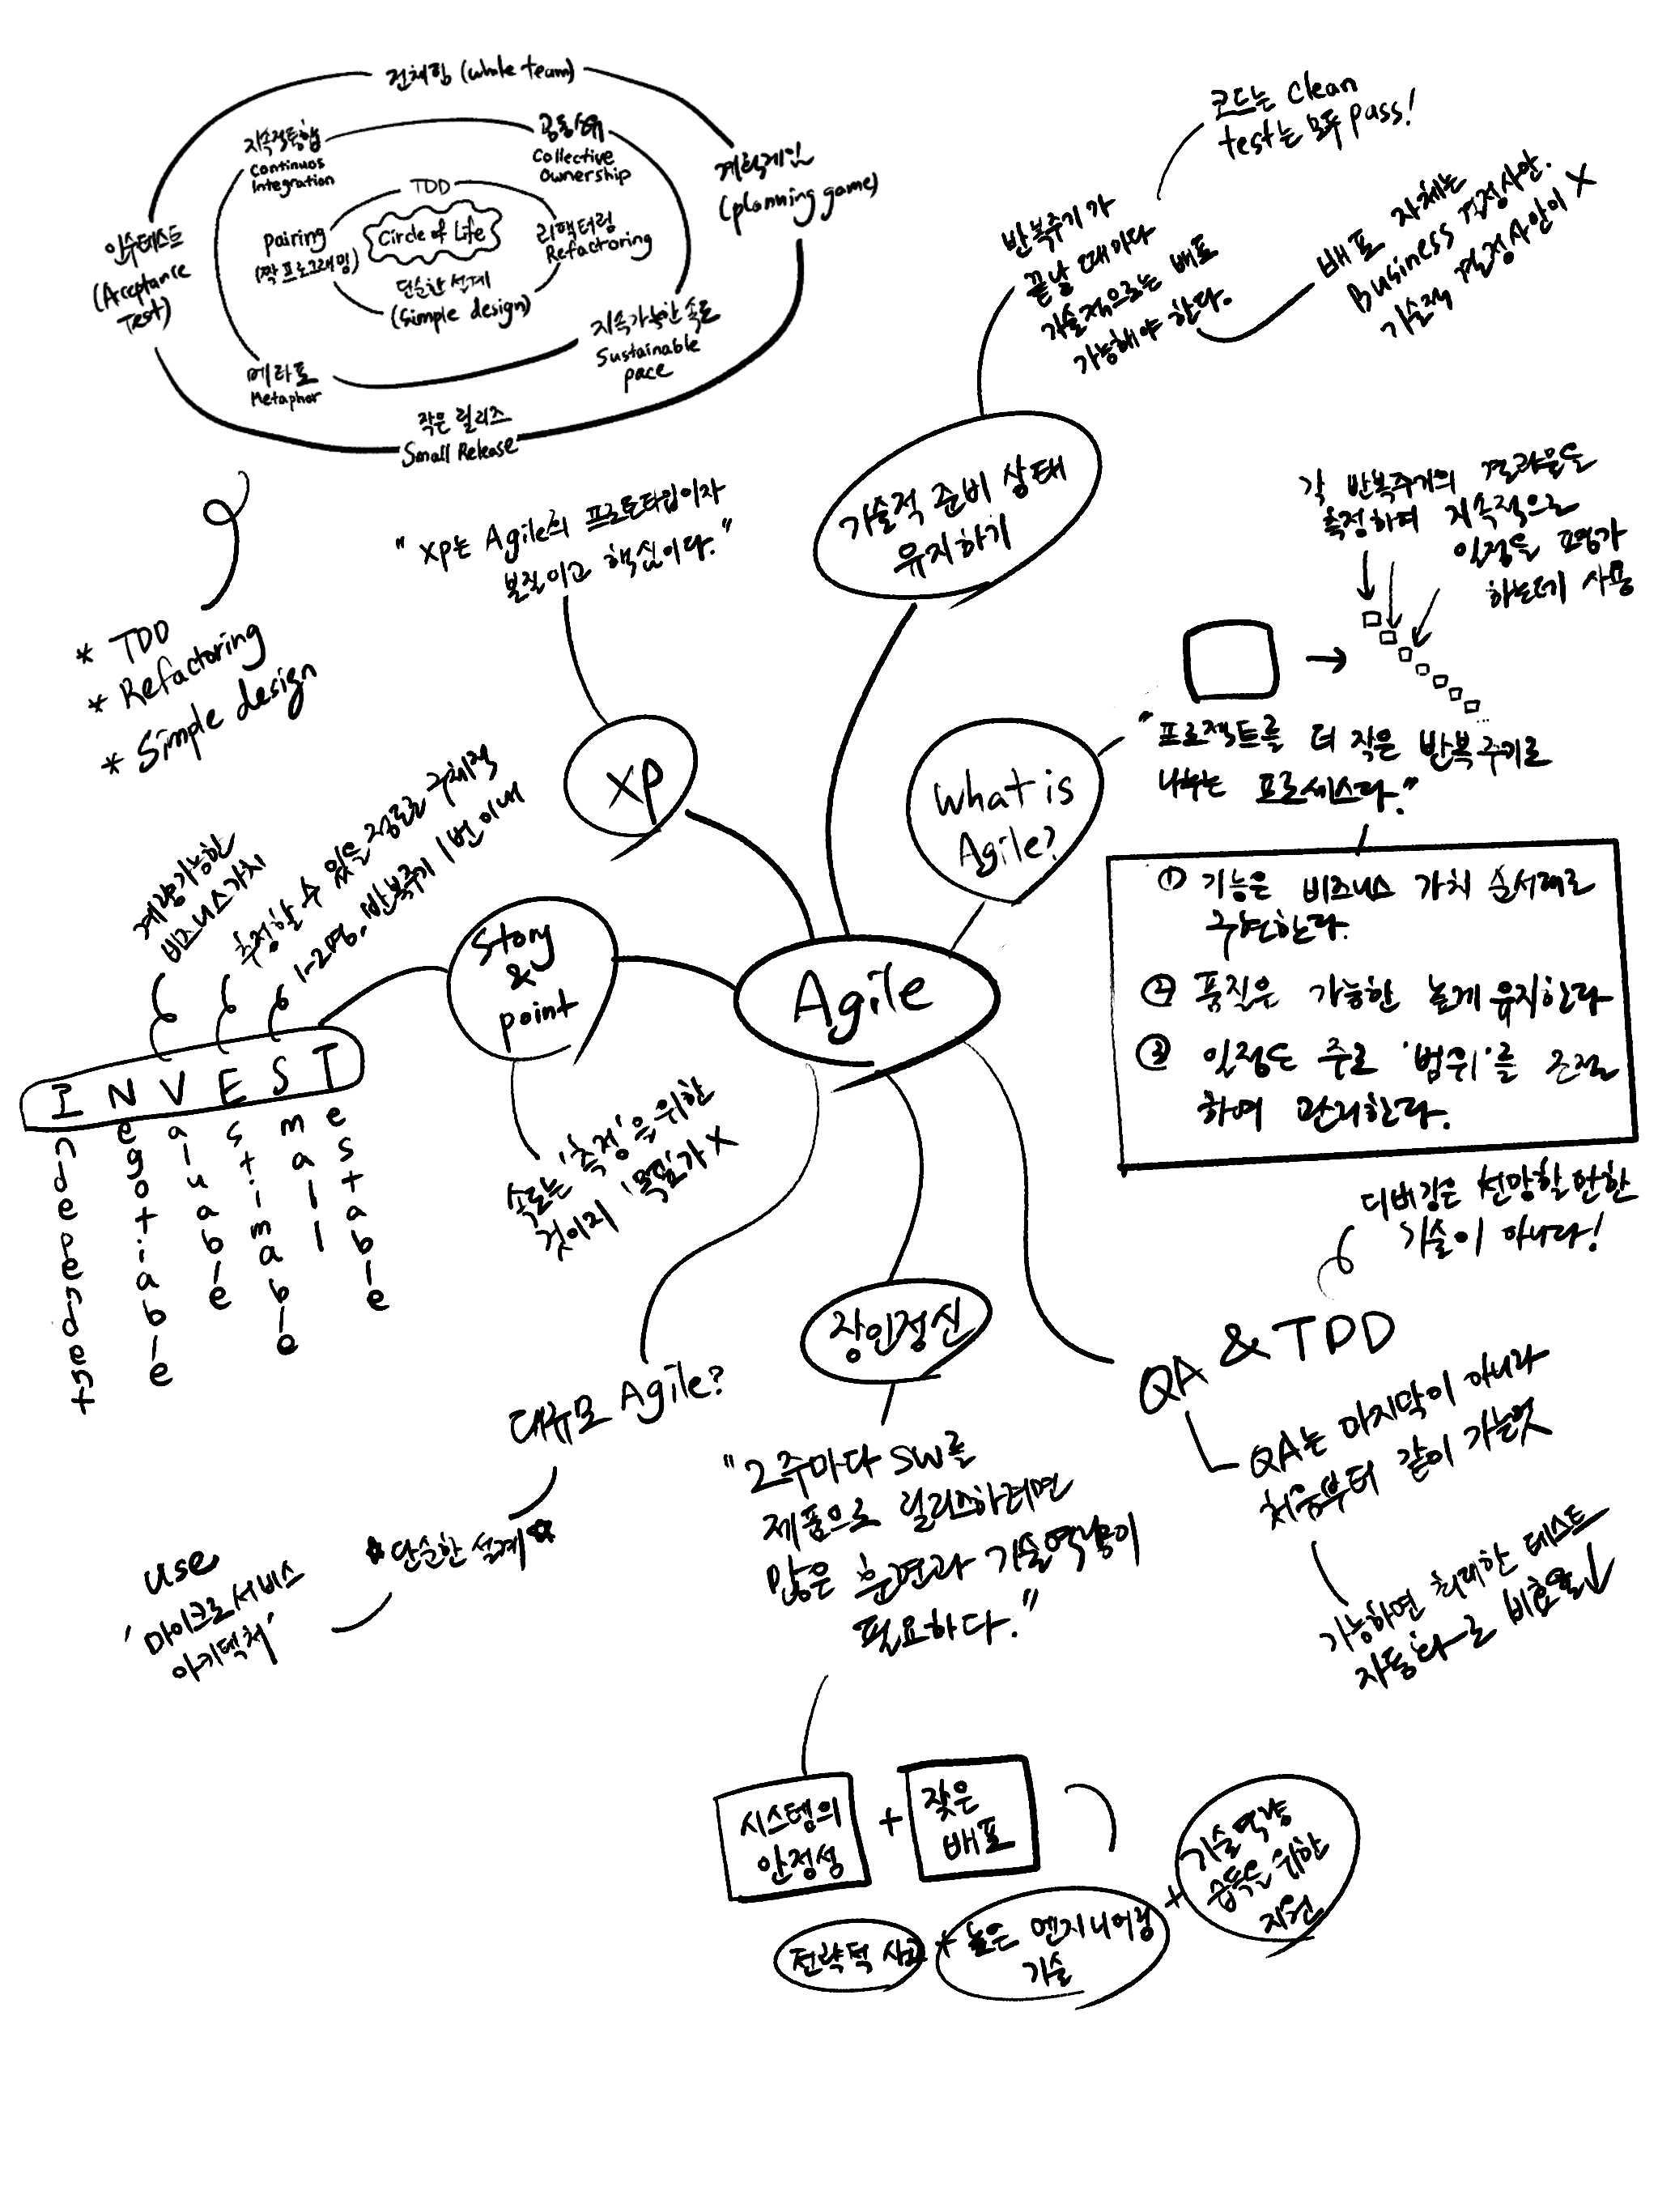 전체팀 (whole team)
지속적통합
Continuos
Integration
공동소유
Collective
Ownership
계획게임
(planning game)
TDD
Circle of Life
pairing
(짝 프로그래밍)
리팩터링
Refactoring
단순한 설계
(simple design)
인수테스트
(Acceptance
Test)
지속가능한 속도
Sustainable
pace
메타포
Metaphor
작은 릴리즈
Small Release
* TDD
* Refactoring
* Simple design
"XP는 Agile의 프로토타입이자
본질이고 핵심이다."
XP
코드는 clean
test는 모두 pass!
반복주기가
끝날 때마다
기술적으로는 배포
가능해야 한다.
배포 자체는
Business 결정사안.
기술적 결정사안이 X
기술적 준비 상태
유지하기
각 반복주기의 결과물을
측정하며 지속적으로
일정을 평가
하는데 사용
What is
Agile?
"프로젝트를 더 작은 반복주기로
나누는 프로세스다."
① 기능은 비즈니스 가치 순서대로
구현한다.
② 품질은 가능한 높게 유지한다
③ 일정은 주로 '범위'를 조절
하여 관리한다.
계량가능한
비즈니스가치
추정할 수 있을 정도로 구체적
1-2명, 반복주기 1번 이내
Story
&
point
INVEST
Independent
Negotiable
Valuable
Estimable
Small
Testable
속도는 '측정'을 위한
것이지 '목표'가 X
Agile
장인정신
"2주마다 SW를
제품으로 릴리즈하려면
많은 훈련과 기술역량이
필요하다."
시스템의
안정성
+
잦은
배포
전략적 사고
+
높은 엔지니어링
기술
+
기술역량
습득을 위한
지원
대규모 Agile?
☆단순한 설계☆
use
'마이크로서비스
아키텍처'
디버깅은 선망할만한
기술이 아니다!
QA & TDD
QA는 마지막이 아니라
처음부터 같이 가는것
가능하면 최대한 테스트
자동화로 비효율↓